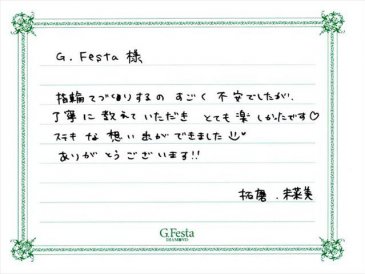 G. Festa 様
指輪てづくりするの すごく 不安でしたが、
丁寧に教えていただき とても楽しかったです♡
ステキな想い出ができました
ありがとうございます!!
拓磨、未菜美
G.Festa
DIAMOND